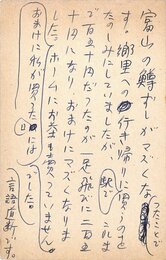 富山の鱒ずしがマズくなつたことで
す。郷里の行き帰りに買うのをと
たのしみにしていましたが駅で
百五十円だつたのが一足飛びに二百五
十円になり、おまけにマズくなりま
した。ホームにお茶も売つていません。
おまけに私が買つた日には
でした。
言語道断です。